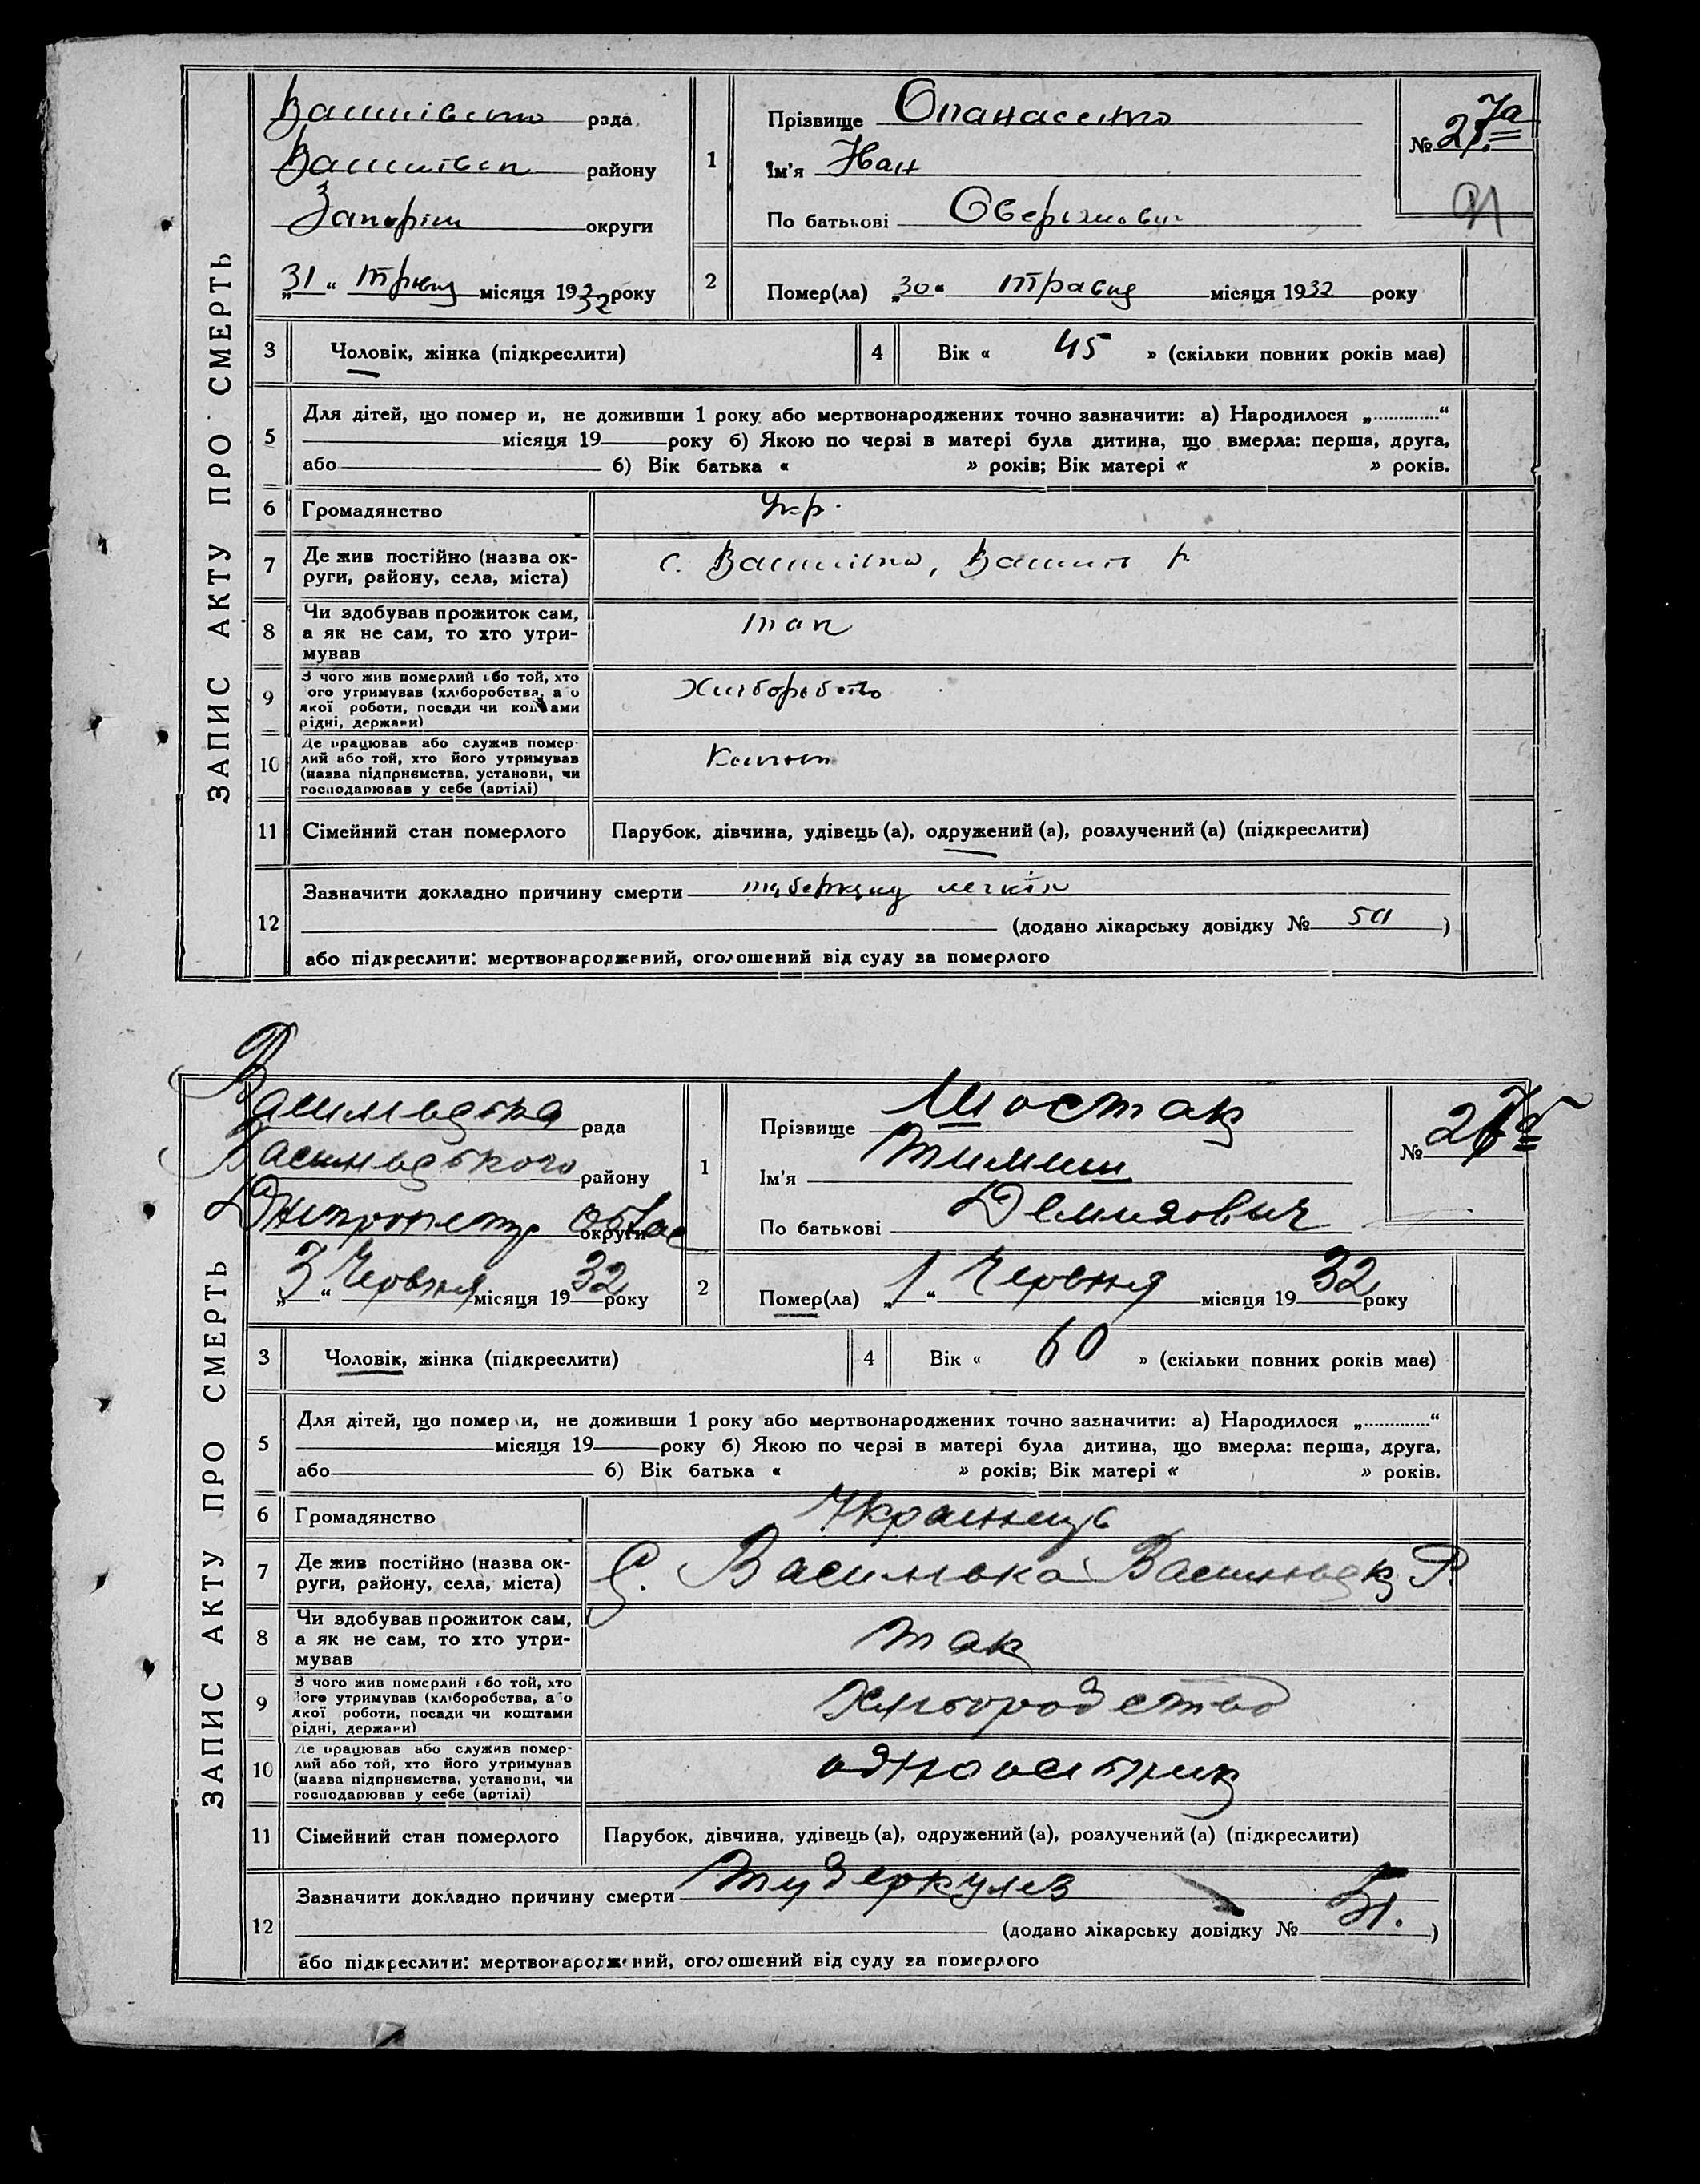 ЗАПИС АКТУ ПРО СМЕРТЬ
Василівська рада
Василівськ району
Запоріж округи
„31“ травня місяця 1932 року
1
Прізвище Опанасенко
Ім'я Іван
По батькові Оверкович
№ 27а
91
2
Помер(ла) „30“ травня місяця 1932 року
3 Чоловік, жінка (підкреслити)
4 Вік « 45 » (скільки повних років має)
5
Для дітей, що помер и, не доживши 1 року або мертвонароджених точно зазначити: а) Народилося „............“
місяця 19 року б) Якою по черзі в матері була дитина, що вмерла: перша, друга,
або б) Вік батька « » років; Вік матері « » років.
6 Громадянство Укр.
7 Де жив постійно (назва ок-
руги, району, села, міста)
с. Василівка, Василів р.
8 Чи здобував прожиток сам,
а як не сам, то хто утри-
мував
так
9 З чого жив померлий або той, хто
його утримував (хліборобства, або
якої роботи, посади чи коштами
рідні, держави)
Хліборобство
10 Де працював або служив помер-
лий або той, хто його утримував
(назва підприємства, установи, чи
господарював у себе (артілі)
11 Сімейний стан померлого Парубок, дівчина, удівець (а), одружений (а), розлучений (а) (підкреслити)
12
Зазначити докладно причину смерти туберкульоз легкіх
(додано лікарську довідку № 50)
або підкреслити: мертвонароджений, оголошений від суду за померлого
ЗАПИС АКТУ ПРО СМЕРТЬ
Васильевска рада
Васильевского району
Дніпропетр облас округи
„3“ Червня місяця 1932 року
1
Прізвище Шостак
Ім'я Тимиш
По батькові Демидович
№ 27б
2
Помер(ла) „1“ Червня місяця 1932 року
3 Чоловік, жінка (підкреслити)
4 Вік « 60 » (скільки повних років має)
5
Для дітей, що помер и, не доживши 1 року або мертвонароджених точно зазначити: а) Народилося „............“
місяця 19 року б) Якою по черзі в матері була дитина, що вмерла: перша, друга,
або б) Вік батька « » років; Вік матері « » років.
6 Громадянство Украинець
7 Де жив постійно (назва ок-
руги, району, села, міста)
С. Василивка Васильевск. Р.
8 Чи здобував прожиток сам,
а як не сам, то хто утри-
мував
так
9 З чого жив померлий або той, хто
його утримував (хліборобства, або
якої роботи, посади чи коштами
рідні, держави)
Хліборобство
10 Де працював або служив помер-
лий або той, хто його утримував
(назва підприємства, установи, чи
господарював у себе (артілі)
одноосібник
11 Сімейний стан померлого Парубок, дівчина, удівець (а), одружений (а), розлучений (а) (підкреслити)
12
Зазначити докладно причину смерти туберкулез
(додано лікарську довідку № 51.)
або підкреслити: мертвонароджений, оголошений від суду за померлого